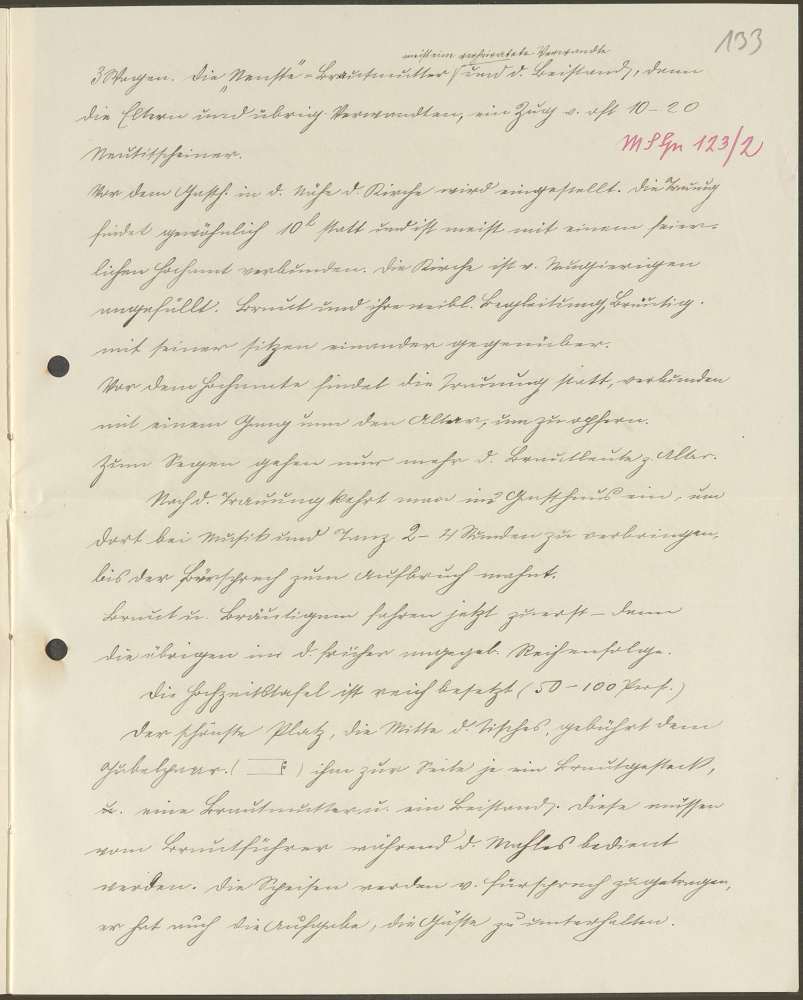 133
meist eine verheiratete Verwandte
3 Wagen. Die „Neuste" = Brautmutter (und d. Beistand), dann
die Eltern und übrig. Verwandten, ein Zug v. oft 10–20
MS Gn 123/2
Neutitscheiner.
Vor dem Gasth. in d. Nähe d. Kirche wird eingestellt. Die Trauung
findet gewöhnlich 10h statt und ist meist mit einem feier-
lichen Hochamt verbunden. Die Kirche ist v. Neugierigen
angefüllt. Braut und ihre weibl. Begleitung, Bräutig.
mit seiner sitzen einander gegenüber.
Vor dem Hochamte findet die Trauung statt, verbunden
mit einem Gang um den Altar, um zu opfern.
Zum Segen gehen nur mehr d. Brautleute z. Altar.
Nach d. Trauung kehrt man ins Gasthaus ein, um
dort bei Musik und Tanz 2–4 Stunden zu verbringen,
bis der Fürsprech zum Aufbruch mahnt.
Braut u. Bräutigam fahren jetzt zuerst – dann
die übrigen in d. früher angegeb. Reihenfolge.
Die Hochzeitstafel ist reich besetzt (50–100 Pers.)
Der schönste Platz, die Mitte d. Tisches, gebührt dem
Jubelpaar. ( ) ihm zur Seite je ein
u. eine Brautmutter u. ein Beistand. Diese müssen
vom Brautführer während d. Mahles bedient
werden. Die Speisen werden v. Fürsprech zugetragen,
er hat auch die Aufgabe, die Gäste zu unterhalten.